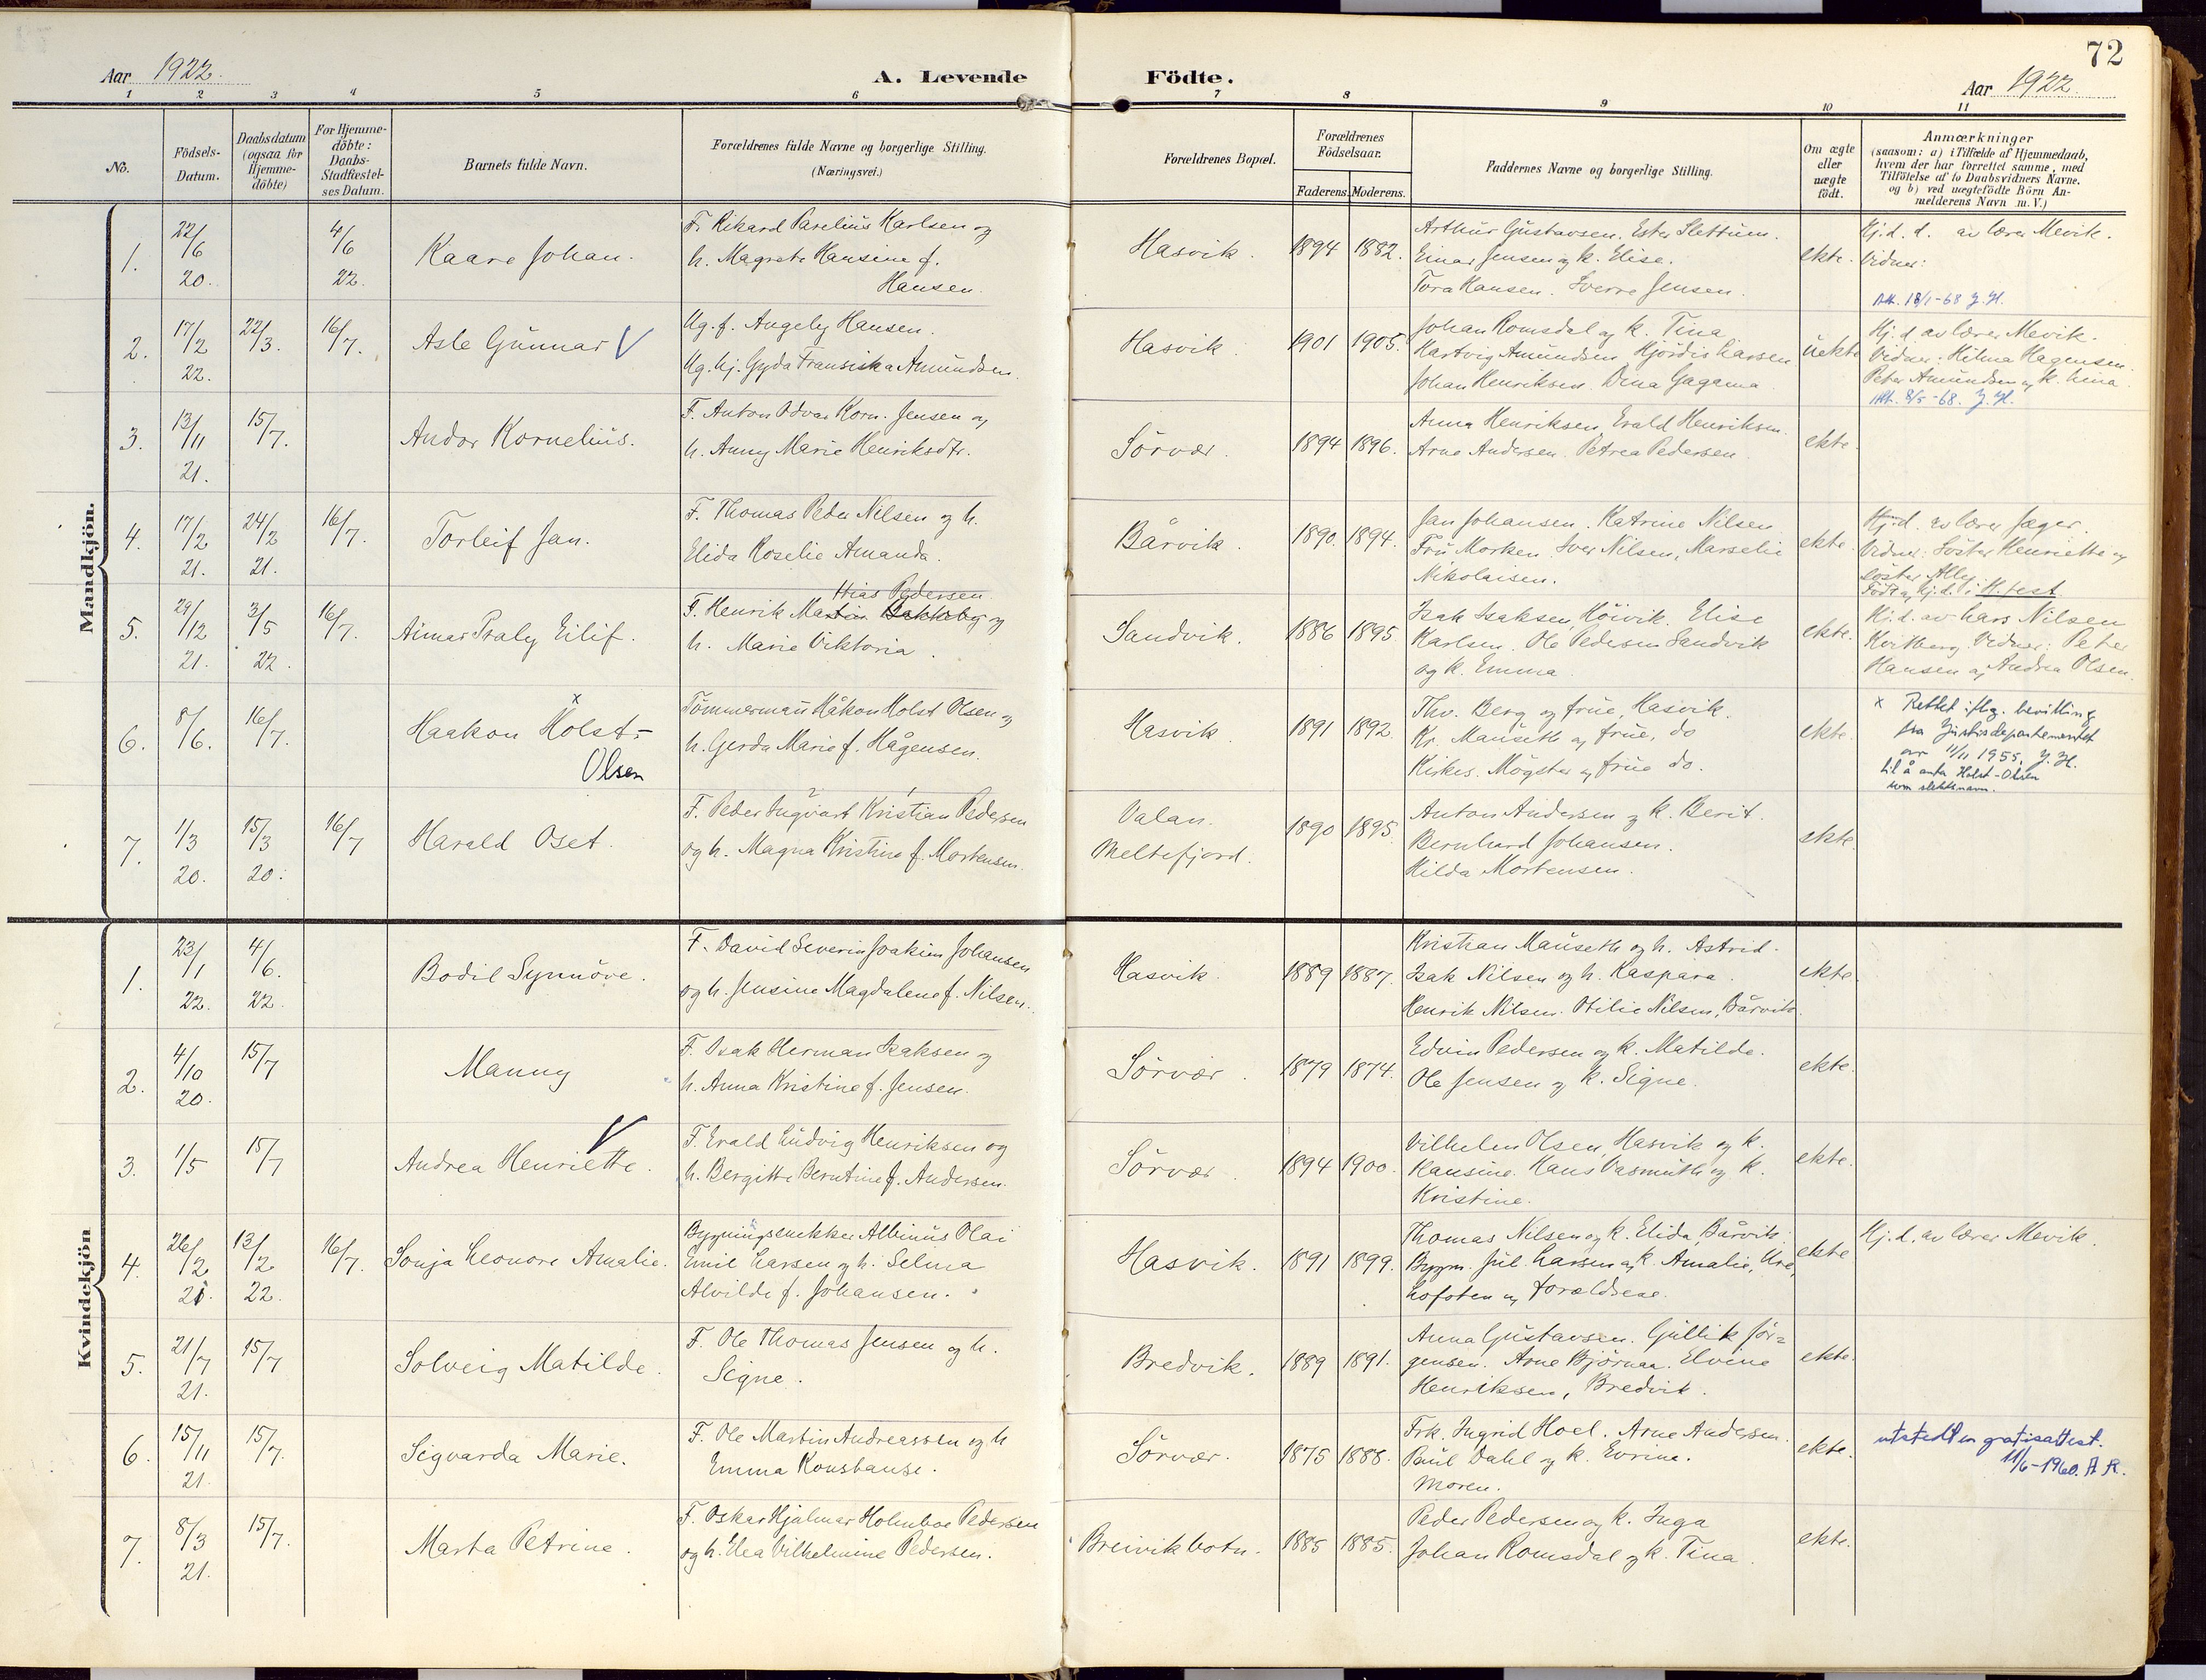 72
Aar 1922.
A. Levende Födte.
Aar 1922.
1 2 3 4 5 6 7 8 9 10 11
No.
Födsels-
Datum.
Daabsdatum
(ogsaa for
Hjemme-
döbte)
For Hjemme-
döbte:
Daabs-
Stadfæstel-
ses Datum.
Barnets fulde Navn.
Forældrenes fulde Navne og borgerlige Stilling.
(Næringsvei.)
Forældrenes Bopæl.
Forældrenes
Födselsaar.
Faderens. Moderens.
Faddernes Navne og borgerlige Stilling.
Om ægte
eller
uægte
födt.
Anmærkninger
(saasom: a) i Tilfælde af Hjemmedaab,
hvem der har forrettet samme, med
Tilföielse af to Daabsvidners Navne.
og b) ved uægtefödte Börn An-
melderens Navn m. V.)
Mandkjön.
1.
22/6
20.
4/6
22.
Kaare Johan.
F. Rikard Parelius Karlsen og
h. Magrete Hansine f.
Hansen.
Hasvik.
1894 1882.
Arthur Gustavsen. Ester Slettum.
Einar Jensen og k. Elise.
Tora Hansen. Sverre Jensen.
ekte.
Hj. d. d. av lærer Mevik.
Vidner:
Att. 18/1-68 J. H.
2.
17/2
22.
22/3.
16/7.
Asle Gunnar V
Ug. f. Angely Hansen.
Ug. hj. Gyda Fransiska Amundsen.
Hasvik
1901 1905.
Johan Romsdal og k. Tina
Hartvig Amundsen Hjördis Larsen
Johan Henriksen. Dina Gagama
uekte
Hj. d. av lærer Mevik.
Vidner: Hilma Hagensen.
Peter Amundsen og k. Lina.
Att. 8/5-68. J. H.
3.
13/11
21.
15/7.
Andor Kornelius.
F. Anton Odvar Korn. Jensen og
h. Anny Marie Henriksdtr.
Sörvær.
1894 1896.
Anna Henriksen, Evald Henriksen.
Arne Andersen. Petrea Pedersen
ekte
4.
17/2
21.
24/2
21.
16/7.
Torleif Jan.
F. Thomas Peder Nilsen og h.
Elida Roselie Amanda.
Bårvik.
1890. 1894.
Jan Johansen. Katrine Nilsen
Fru Morken. Iver Nilsen, Marselie
Nikolaisen.
ekte.
Hj. d. av lærer Jæger.
Vidner: Söster Henriette og
söster Ally.
Födt og hj. d. i H. fest
5.
29/12
21.
3/5
22.
16/7.
Aimar Praly Eilif.
Hias Pedersen
F. Henrik Martin Bakkeby og
h. Marie Viktoria.
Sandvik.
1886 1895.
Isak Isaksen, Höivik. Elise
Karlsen. Ole Pedersen Sandvik
og k. Emma
ekte.
Hj. d. av Lars Nilsen
Kvitberg. Vidner: Peter
Hansen og Andrea Olsen.
6.
8/6.
16/7.
x
Haakon Holst-
Olsen
Tömmermann Håkon Holst Olsen og
h. Gerda Marie f. Hågensen.
Hasvik
1891 1892.
Thv. Berg og frue, Hasvik.
Kr. Mauseth og frue, do
Kirkes. Mögster og frue do.
ekte.
x Rettet iflg. bevilling
fra Justisdepartementet
av 11/11 1955, J. H.
til å anta Holst-Olsen
som slektsnavn.
7.
1/3
20.
15/3
20.
16/7
Harald Oset.
F. Peder Ingvart Kristian Pedersen
og h. Magna Kristine f. Mortensen.
Valan.
Meltefjord.
1890 1895
Anton Andersen og k. Berit.
Bernhard Johansen.
Hilda Mortensen.
ekte.
Kvindekjön
1.
23/1
22.
4/6.
22.
Bodil Synnöve.
F. David Severin Joakim Johansen
og h. Jensine Magdalene f. Nilsen.
Hasvik.
1889 1887.
Kristian Mauseth og h. Astrid.
Isak Nilsen og h. Kaspara.
Henrik Nilsen. Otilie Nilsen, Bårvik.
ekte.
2.
4/10
20.
15/7
Manny
F. Isak Herman Isaksen og
h. Anna Kristine f. Jensen.
Sörvær.
1879 1874.
Edvin Pedersen og k. Matilde.
Ole Jensen og k. Signe.
ekte.
3.
1/5
15/7
V
Andrea Henriette.
F. Evald Ludvig Henriksen og
h. Bergitte Berntine f. Andersen.
Sörvær.
1894 1900.
Vilhelm Olsen, Hasvik og k.
Hansine. Hans Vasmuth og k.
Kristine.
ekte.
4.
26/2
21.
13/2
22.
16/7.
Sonja Leonore Amalie.
Bygningssnekker Albinus Olai
Emil Larsen og h. Selma
Alvilde f. Johansen.
Hasvik.
1891 1899.
Thomas Nilsen og k. Elida, Bårvik.
Bygm. Jul. Larsen og k. Amalie, Ure,
Lofoten og forældrene.
ekte
Hj. d. av lærer Mevik.
5.
21/7
21.
15/7
Solveig Matilde.
F. Ole Thomas Jensen og h.
Signe.
Bredvik.
1889 1891.
Anna Gustavsen. Gullik Jör=
gensen. Arne Björnaa. Elvine
Henriksen, Bredvik.
ekte.
6.
15/11
21.
15/7.
Sigvarda Marie.
F. Ole Martin Andreassen og h
Emma Konstanse.
Sörvær.
1875 1888.
Frk. Ingrid Hoel. Arne Andersen.
Paul Dahl og k. Evrine.
Moren.
ekte.
utstedt en gratisattest.
11/6-1960. A R.
7.
8/3
21.
15/7.
Marta Petrine.
F. Oskar Hjalmar Holmboe Pedersen
og h. Elea Vilhelmine Pedersen.
Breivikbotn.
1885 1885.
Peder Pedersen og k. Inga
Johan Romsdal og k. Tina.
ekte.